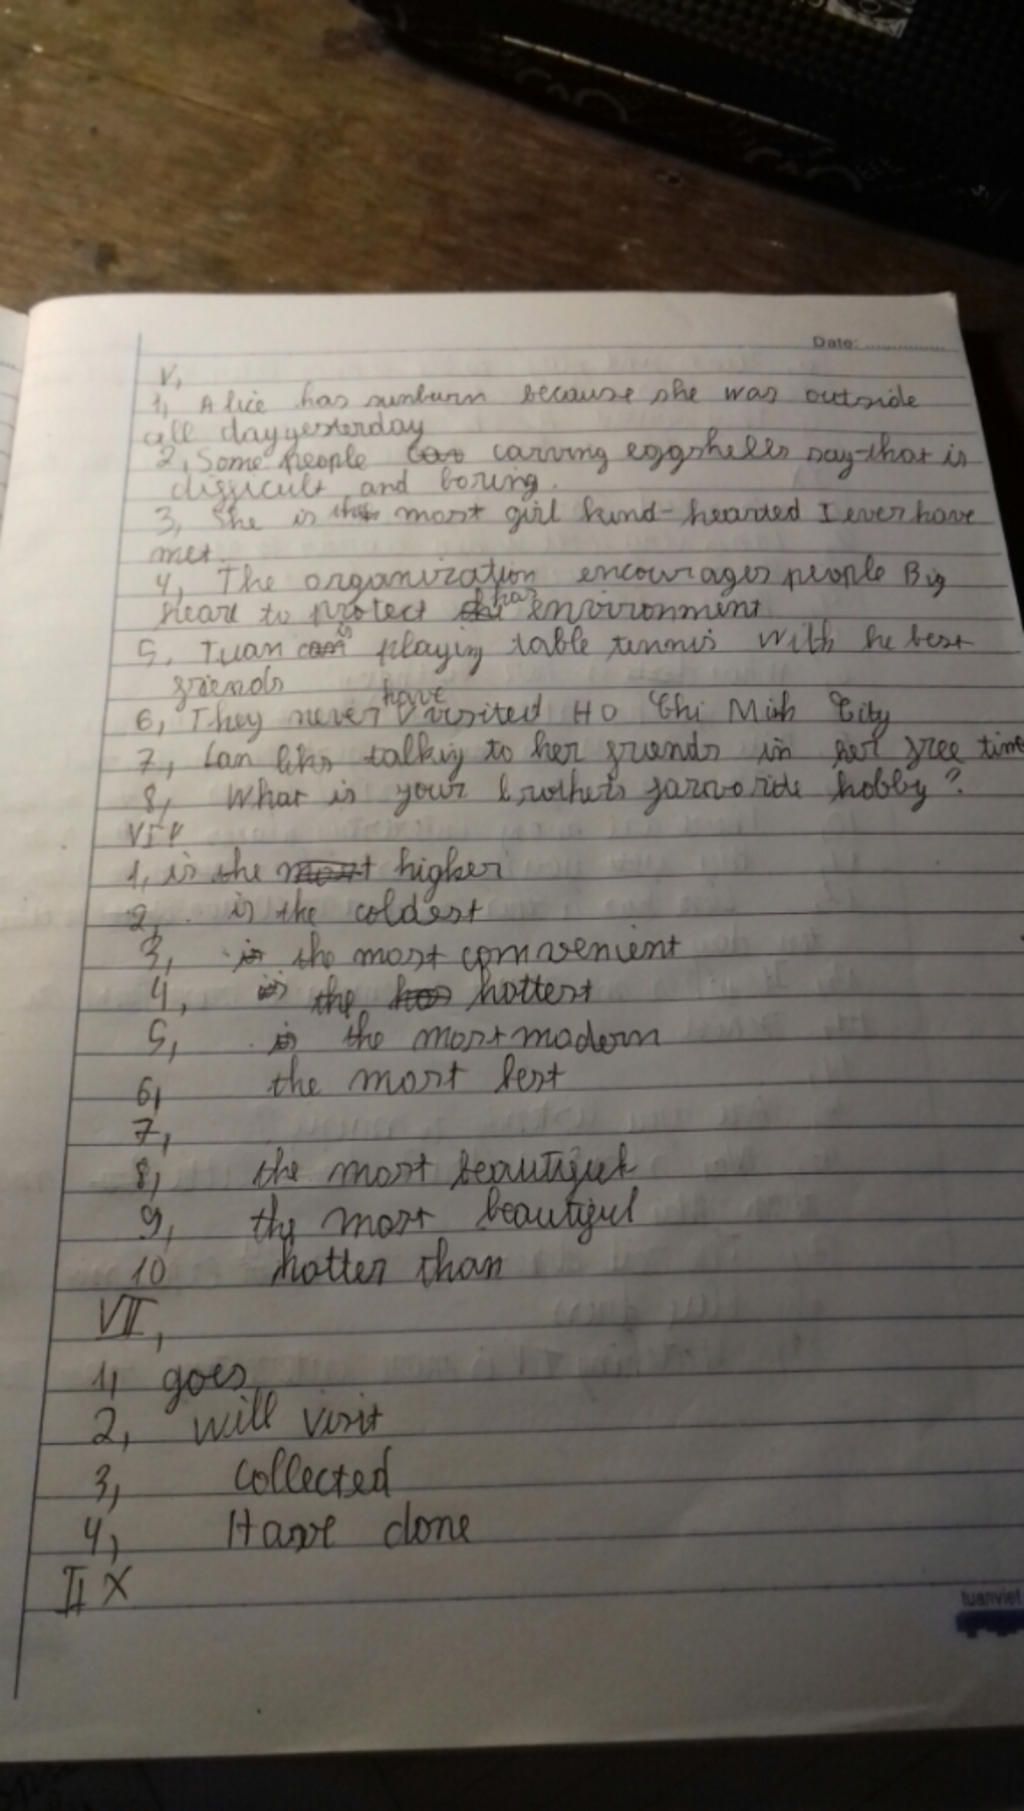 Date: ................
V,
1, Alice has sunburn because she was outside
all day yesterday
2, Some people carving eggshells say that is
difficult and boring.
3, She is the most girl kind-hearted I ever have
met.
4, The organization encourages people Big
heart to protect has environment
5, Tuan is playing table tennis with he best
friends
6, They never have visited Ho Chi Minh City
7, Lan likes talking to her friends in her free time
8, What is your brother's hobby?
1, is the higher
2, is the coldest
3, is the most comvenient
4, is the hottest
5, is the most modern
6, the most best
7,
8, the most beautiful
9, the most beautiful
10 hotter than
VII,
1, goes
2, will visit
3, collected
4, Have done
II X
tuanviet